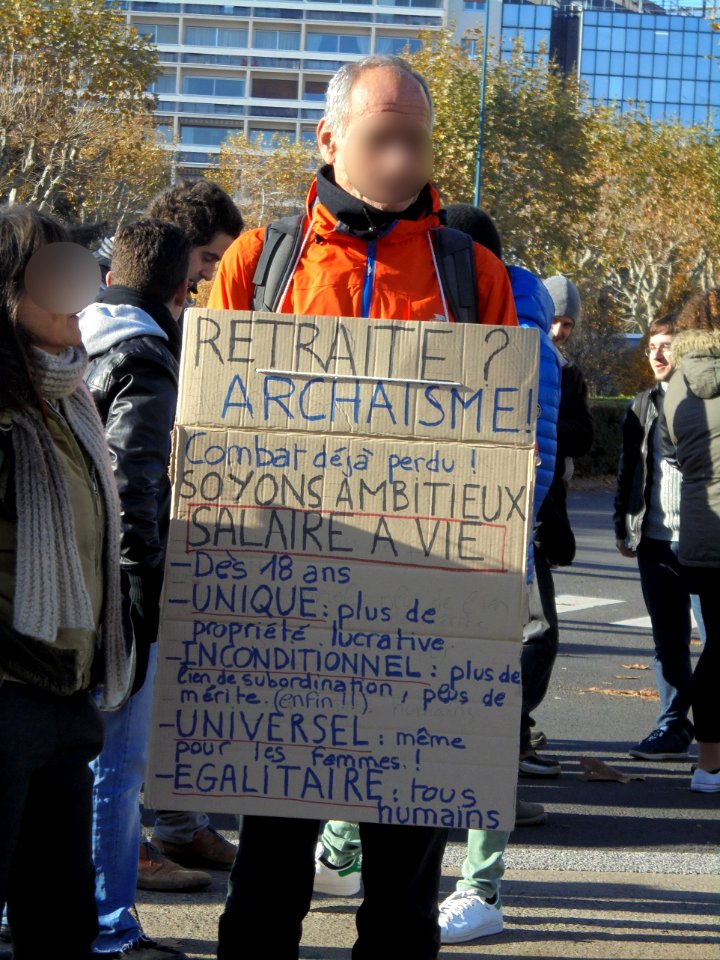 RETRAITE ?
ARCHAISME!
Combat déjà perdu !
SOYONS AMBITIEUX
SALAIRE A VIE
- Dès 18 ans
- UNIQUE : plus de
propriété lucrative
- INCONDITIONNEL : plus de
lien de subordination, plus de
mérite. (enfin !!)
- UNIVERSEL : même
pour les femmes !
- EGALITAIRE : tous
humains